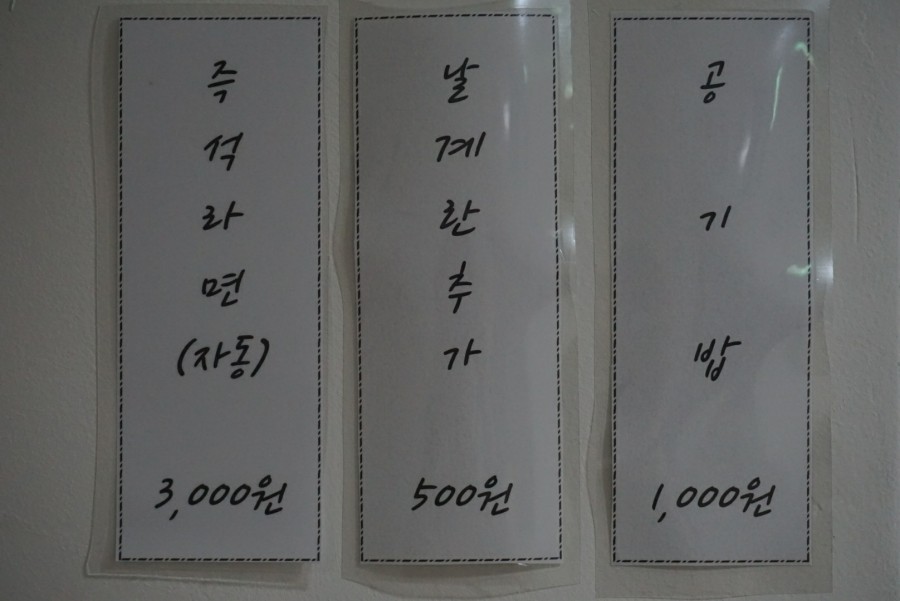 즉
석
라
면
(자동)
3,000원
날
계
란
추
가
500원
공
기
밥
1,000원